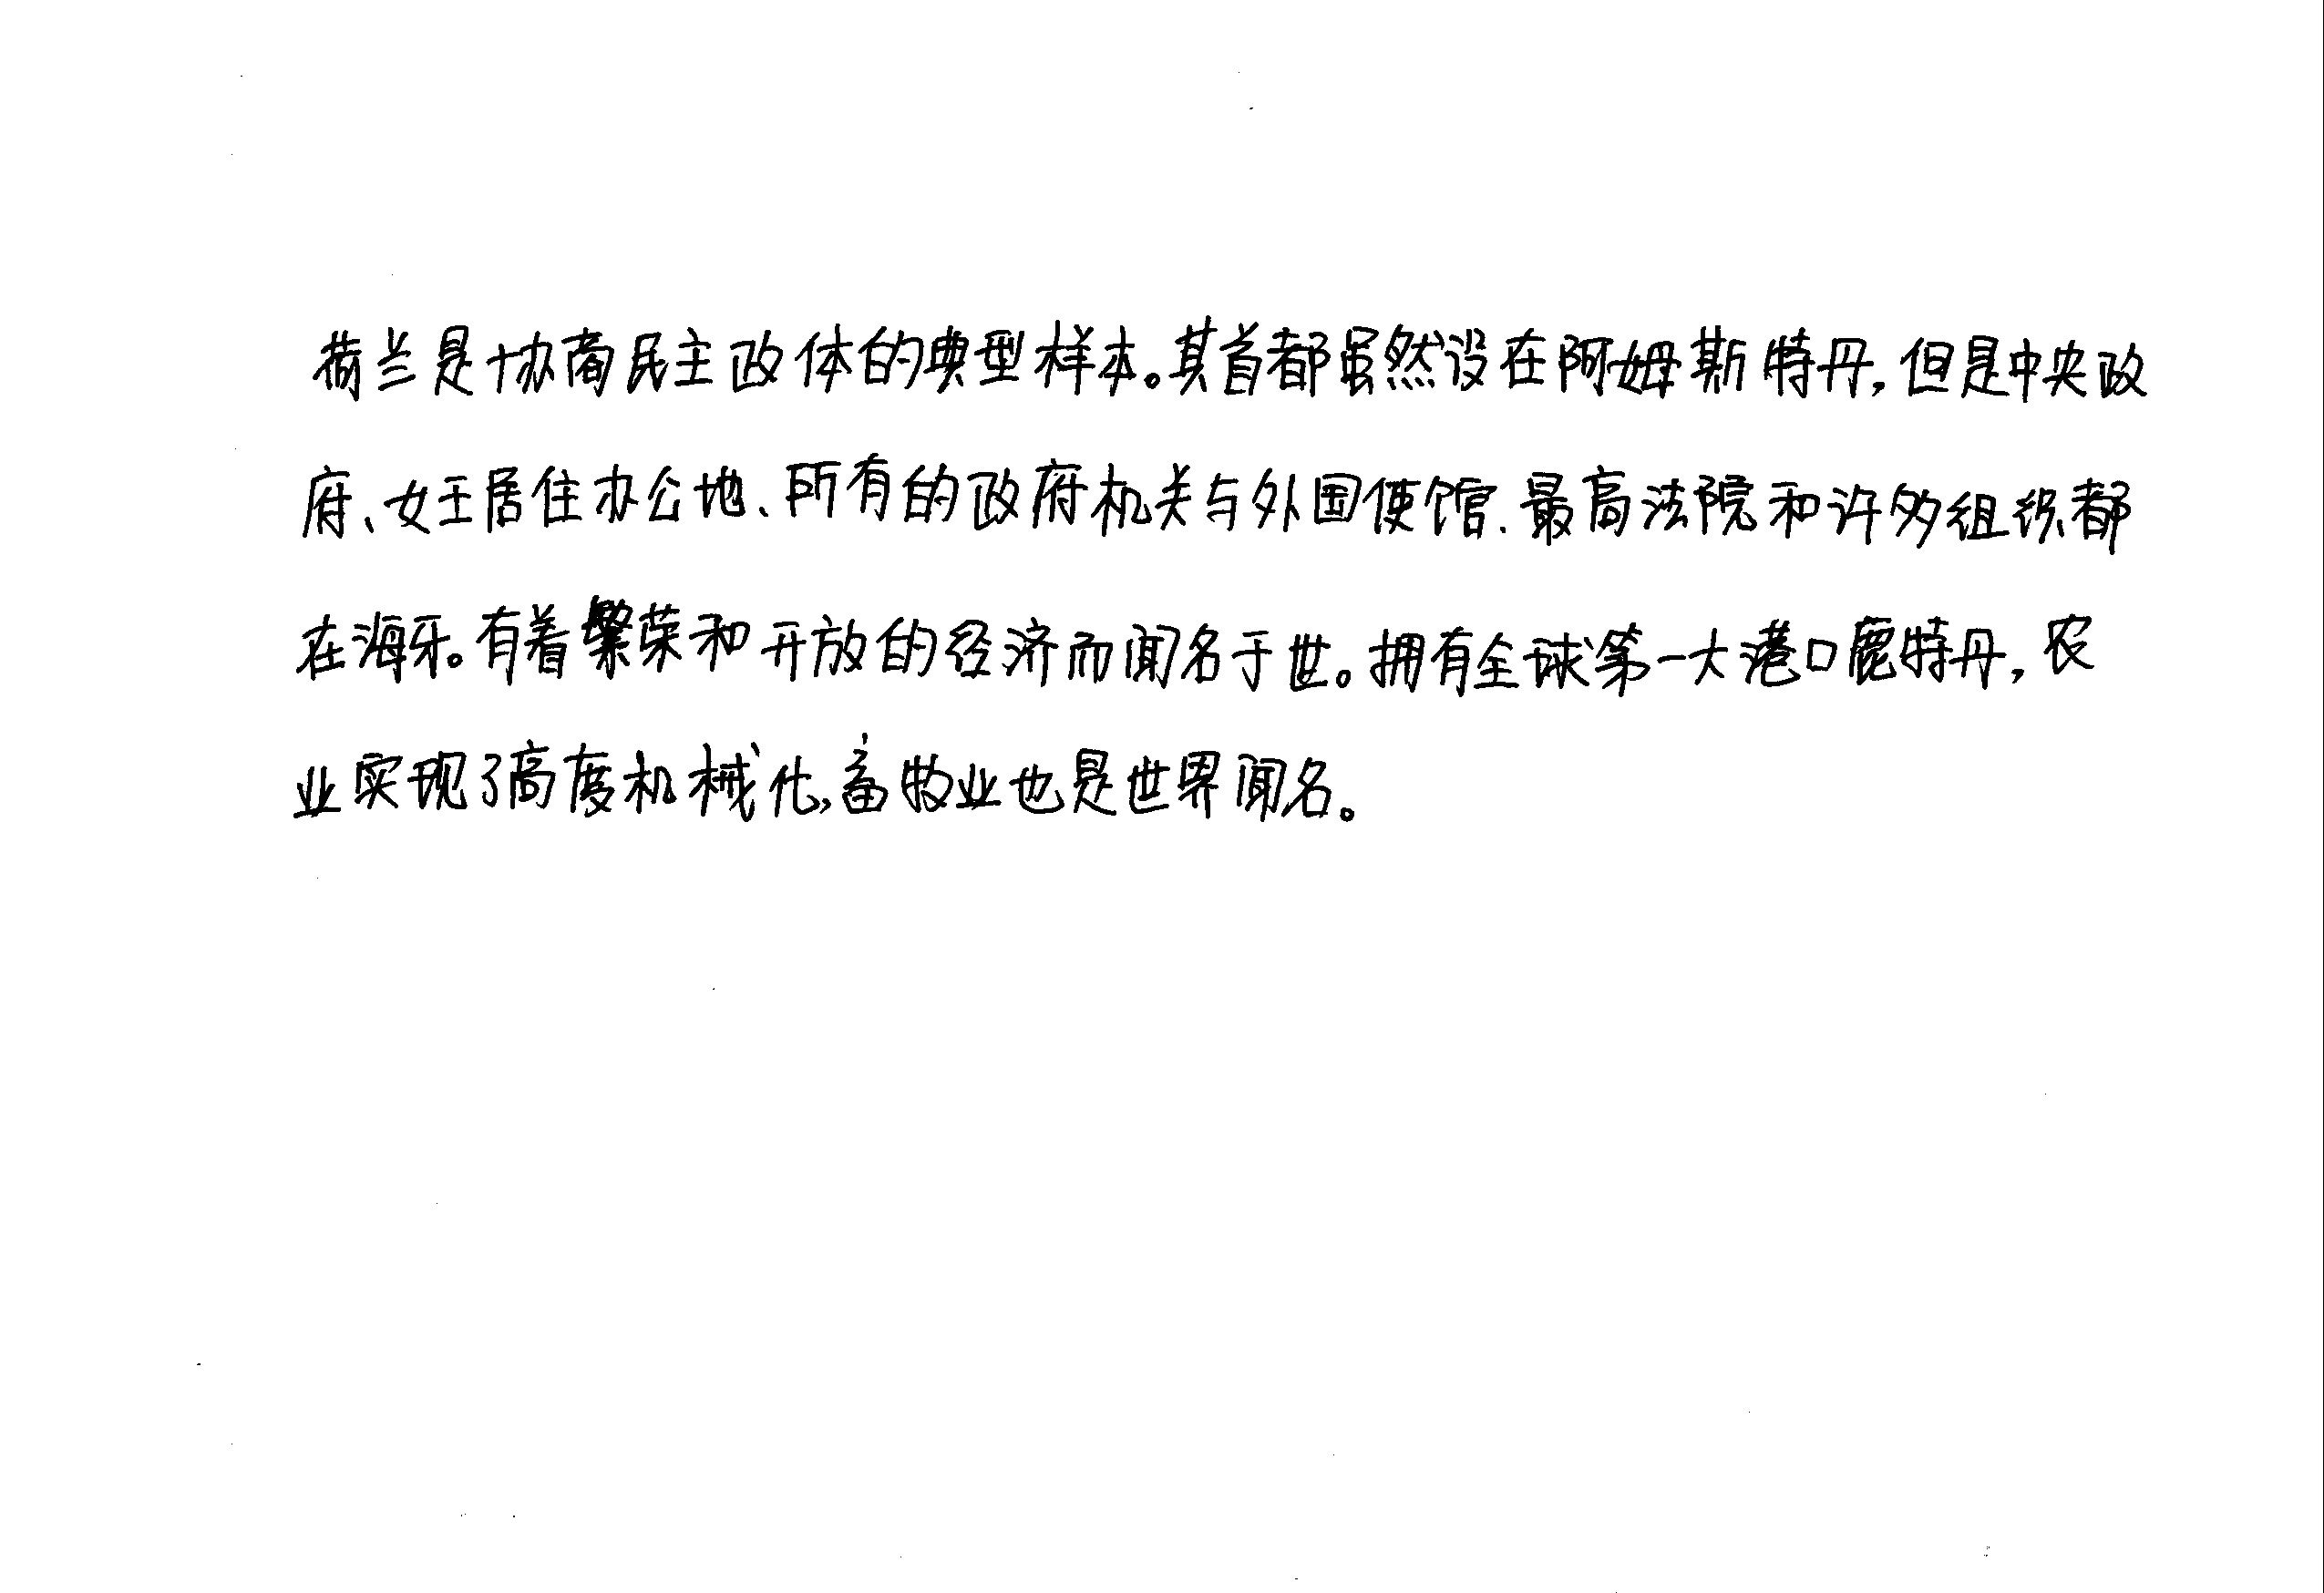 荷兰是协商民主政体的典型样本。其首都虽然设在阿姆斯特丹，但是中央政
府、女王居住办公地、所有的政府机关与外国使馆、最高法院和许多组织都
在海牙。有着繁荣和开放的经济而闻名于世。拥有全球第一大港口鹿特丹，农
业实现了高度机械化，畜牧业也是世界闻名。